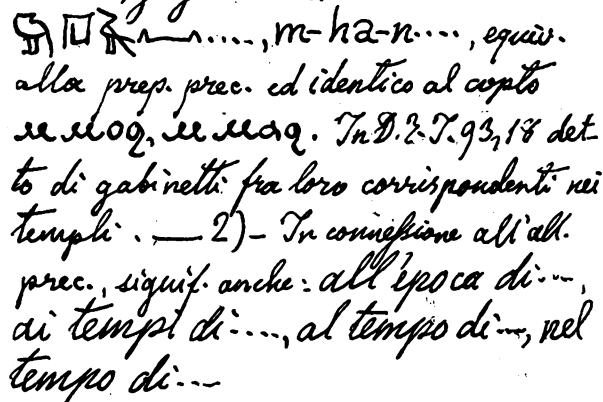 ...., m-ha-n...., equiv.
alla prep. prec. ed identico al copto
ⲙⲙⲟϥ, ⲙⲙⲁϥ. In D. 2. I. 93,18 det-
to di gabinetti fra loro corrispondenti nei
templi. — 2)- In connessione all'all.
prec., signif. anche: all'época di...,
ai tempi di...., al tempo di..., nel
tempo di...